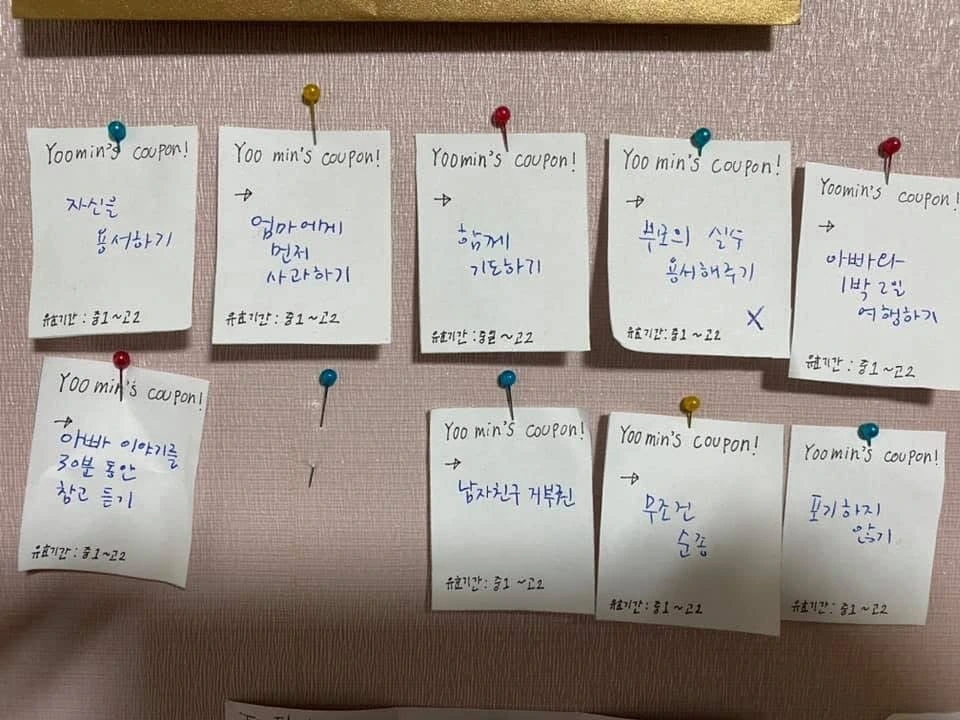 Yoomin's coupon!
자신을
용서하기
유효기간 : 중1~고2
Yoo min's coupon!
→
엄마에게
먼저
사과하기
유효기간 : 중1~고2
Yoomin's coupon!
→
함께
기도하기
유효기간 : ~고2
Yoo min's coupon!
→
부모의 실수
용서해주기
X
유효기간 : 중1~고2
Yoomin's coupon!
→
아빠와
1박 2일
여행하기
유효기간 : 중1~고2
Yoo min's coupon!
→
아빠 이야기를
30분 동안
참고 듣기
유효기간 : 중1~고2
Yoo min's coupon!
→
남자친구 거부권
유효기간 : 중1~고2
Yoo min's coupon!
→
무조건
순종
유효기간 : 중1~고2
Yoo min's coupon!
포기하지
않기
유효기간 : 중1~고2